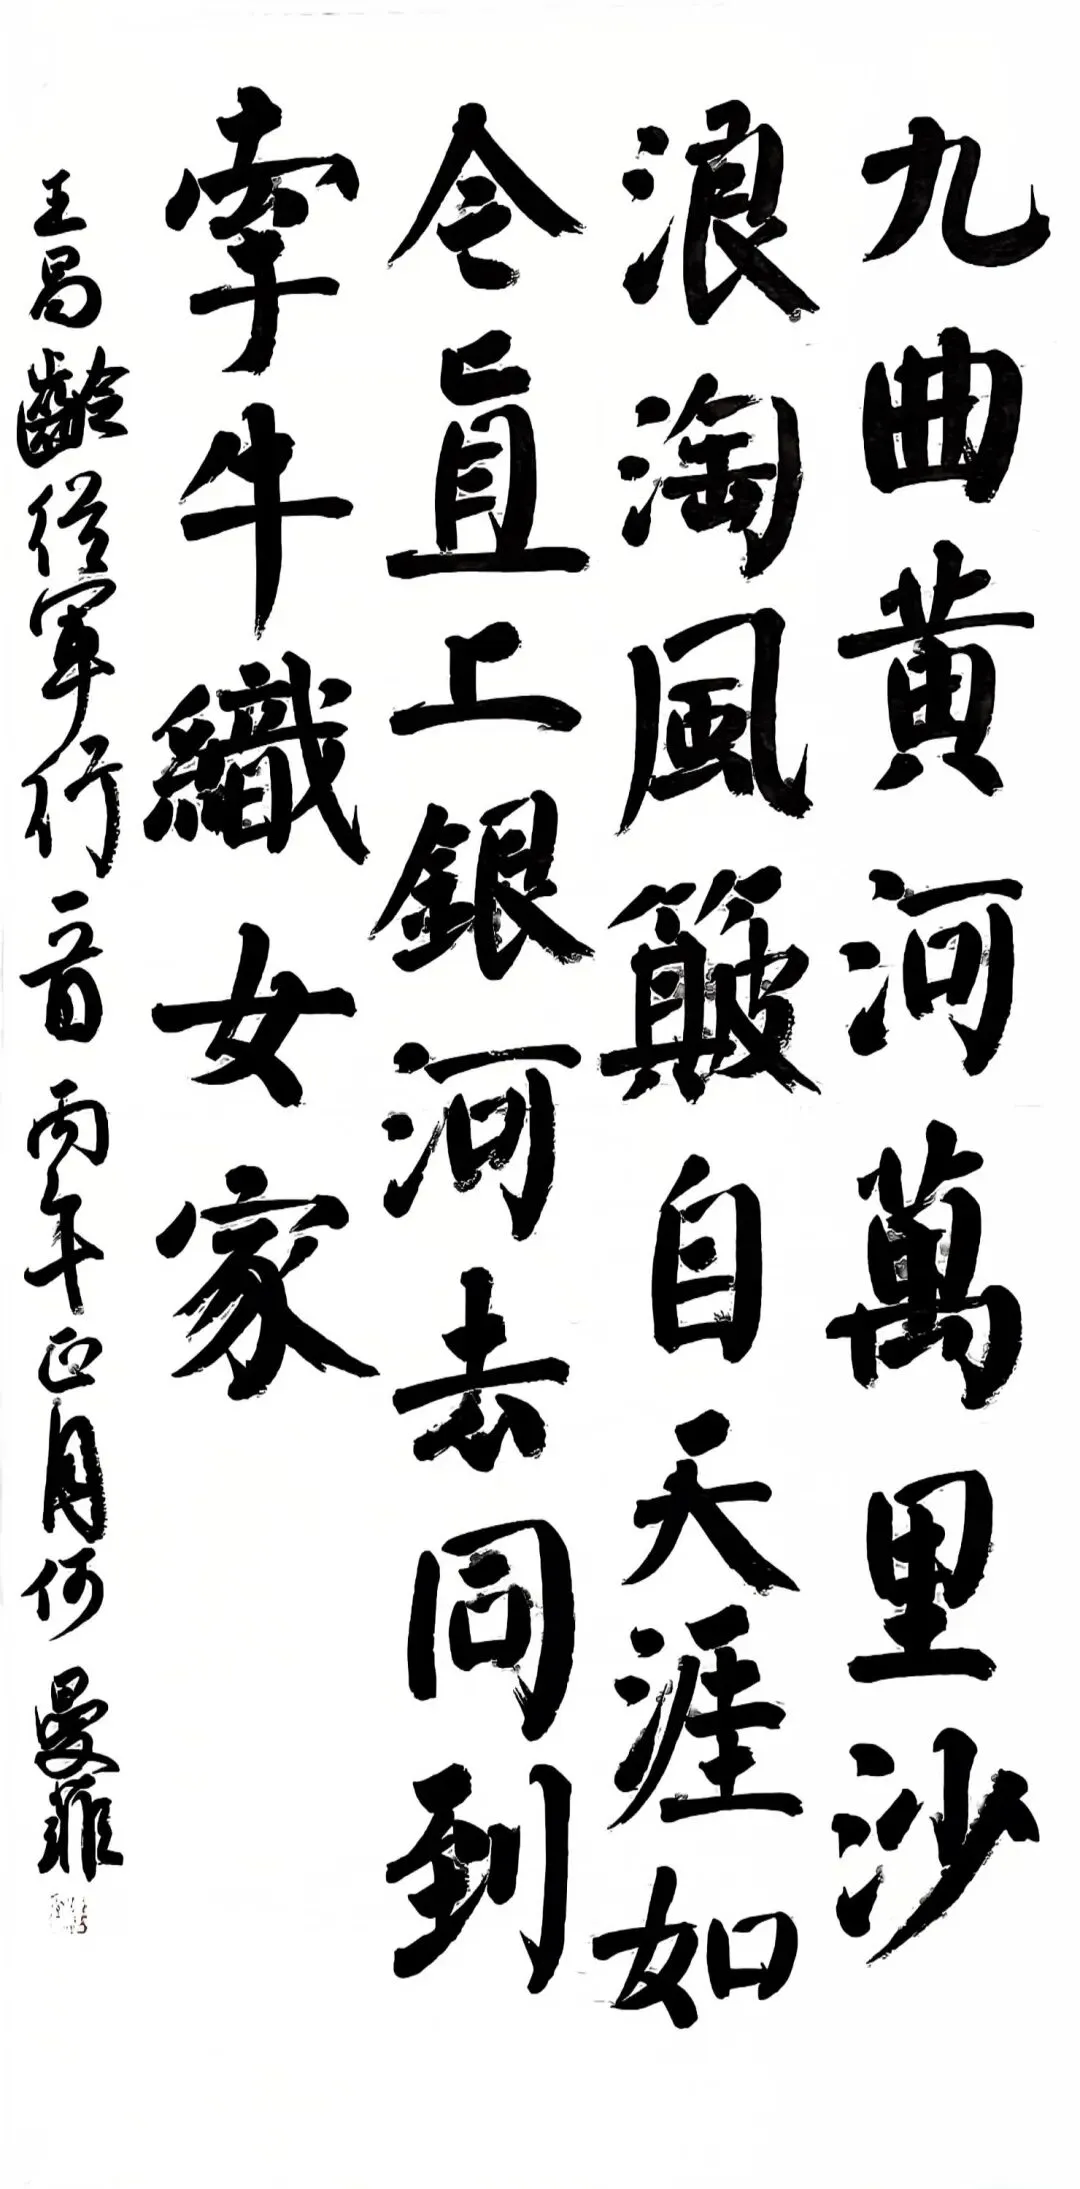 九曲黄河萬里沙
浪淘風簸自天涯如
今直上銀河去同到
牽牛織女家
王昌齡從軍行一首丙午正月何曼菲